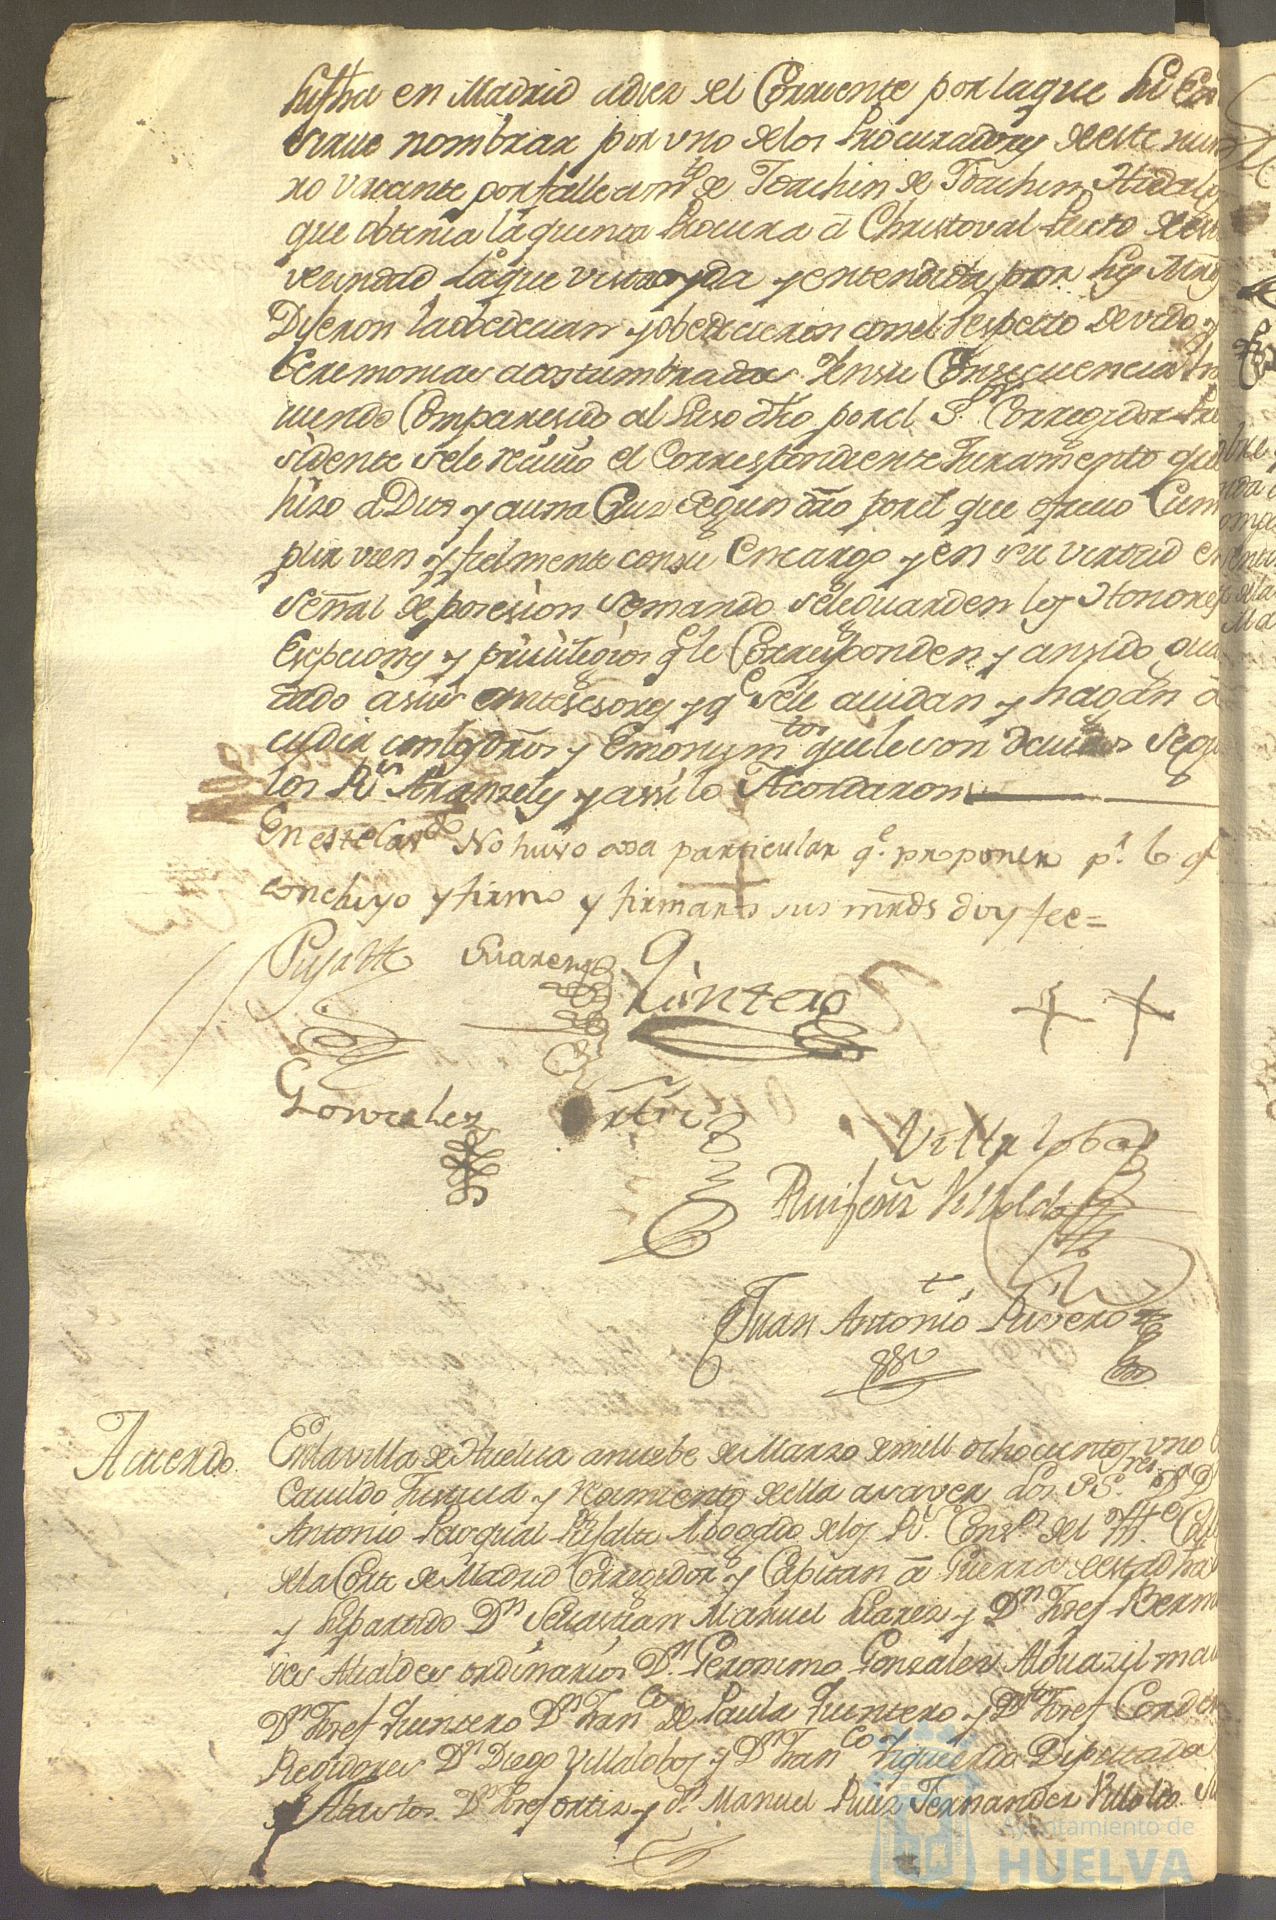 en Madrid a diez del Corriente por la que
sirve nombrar por uno de los Procuradores de este
ro vacante por fallecim.to de Joachin de Joachin Hidalgo
que obtenia la quenta Procura a Christoval Prieto de esta
vecindad la que vista oyda y entendida por
Dijeron la obedecian y obedecieron con el respecto devido y
Ceremonias acostumbradas. Y en su Consecuencia
viendo Comparesido al Piso dho por el S.or Corregidor Pre
sidente se le recivio el Correspondiente Juramento que
hizo a Dios y a una Cruz segun dro por el que ofrecio Cum
plir vien y fielmente con su Encargo y en su virtud en
señal de posesion se mando se le guarden los Honores
Escpciones y privilegios q.e le Corresponden y an sido guar
dado a sus antesesores y q.e se le acudan y hagan a
cudir con los dros y Emolum.tos que le son devidos segun
los R.s Aranzeles y assi lo Acordaron
En este Cav.do No huvo cosa particular q.e proponer p.r lo q.e
concluyo y firmo y firmaron sus mrds doy fee=
Suarez
Quintero
Gonzalez
Ortiz
Villalobos
Ruiz Fern.z Villoldo
Juan Antonio Rivero
Acuerdo
En la villa de Huelva a nuebe de Marzo de mill ochocientos uno
Cavildo Justicia y Regimiento de ella a saver los SS.res D.n
Antonio Pasqual Abogado de los R.s Cons.os del
de la Corte de Madrid Corregidor y Capitan a Guerra de esta dha
y su Partido D.n Sebastian Manuel Suarez y D.n Josef Bermu
des Alcaldes ordinarios D.n Geronimo Gonzalez Alguazil ma
D.n Josef Quintero D.n Fran.co de Paula Quintero y D.n Josef Cordero
Regidores D.n Diego Villalobos y D.n Fran.co Figueroa Diputado
Abastos D.n Josef Ortiz y D.n Manuel Ruiz Fernandez Villoldo
Ayuntamiento de
HUELVA